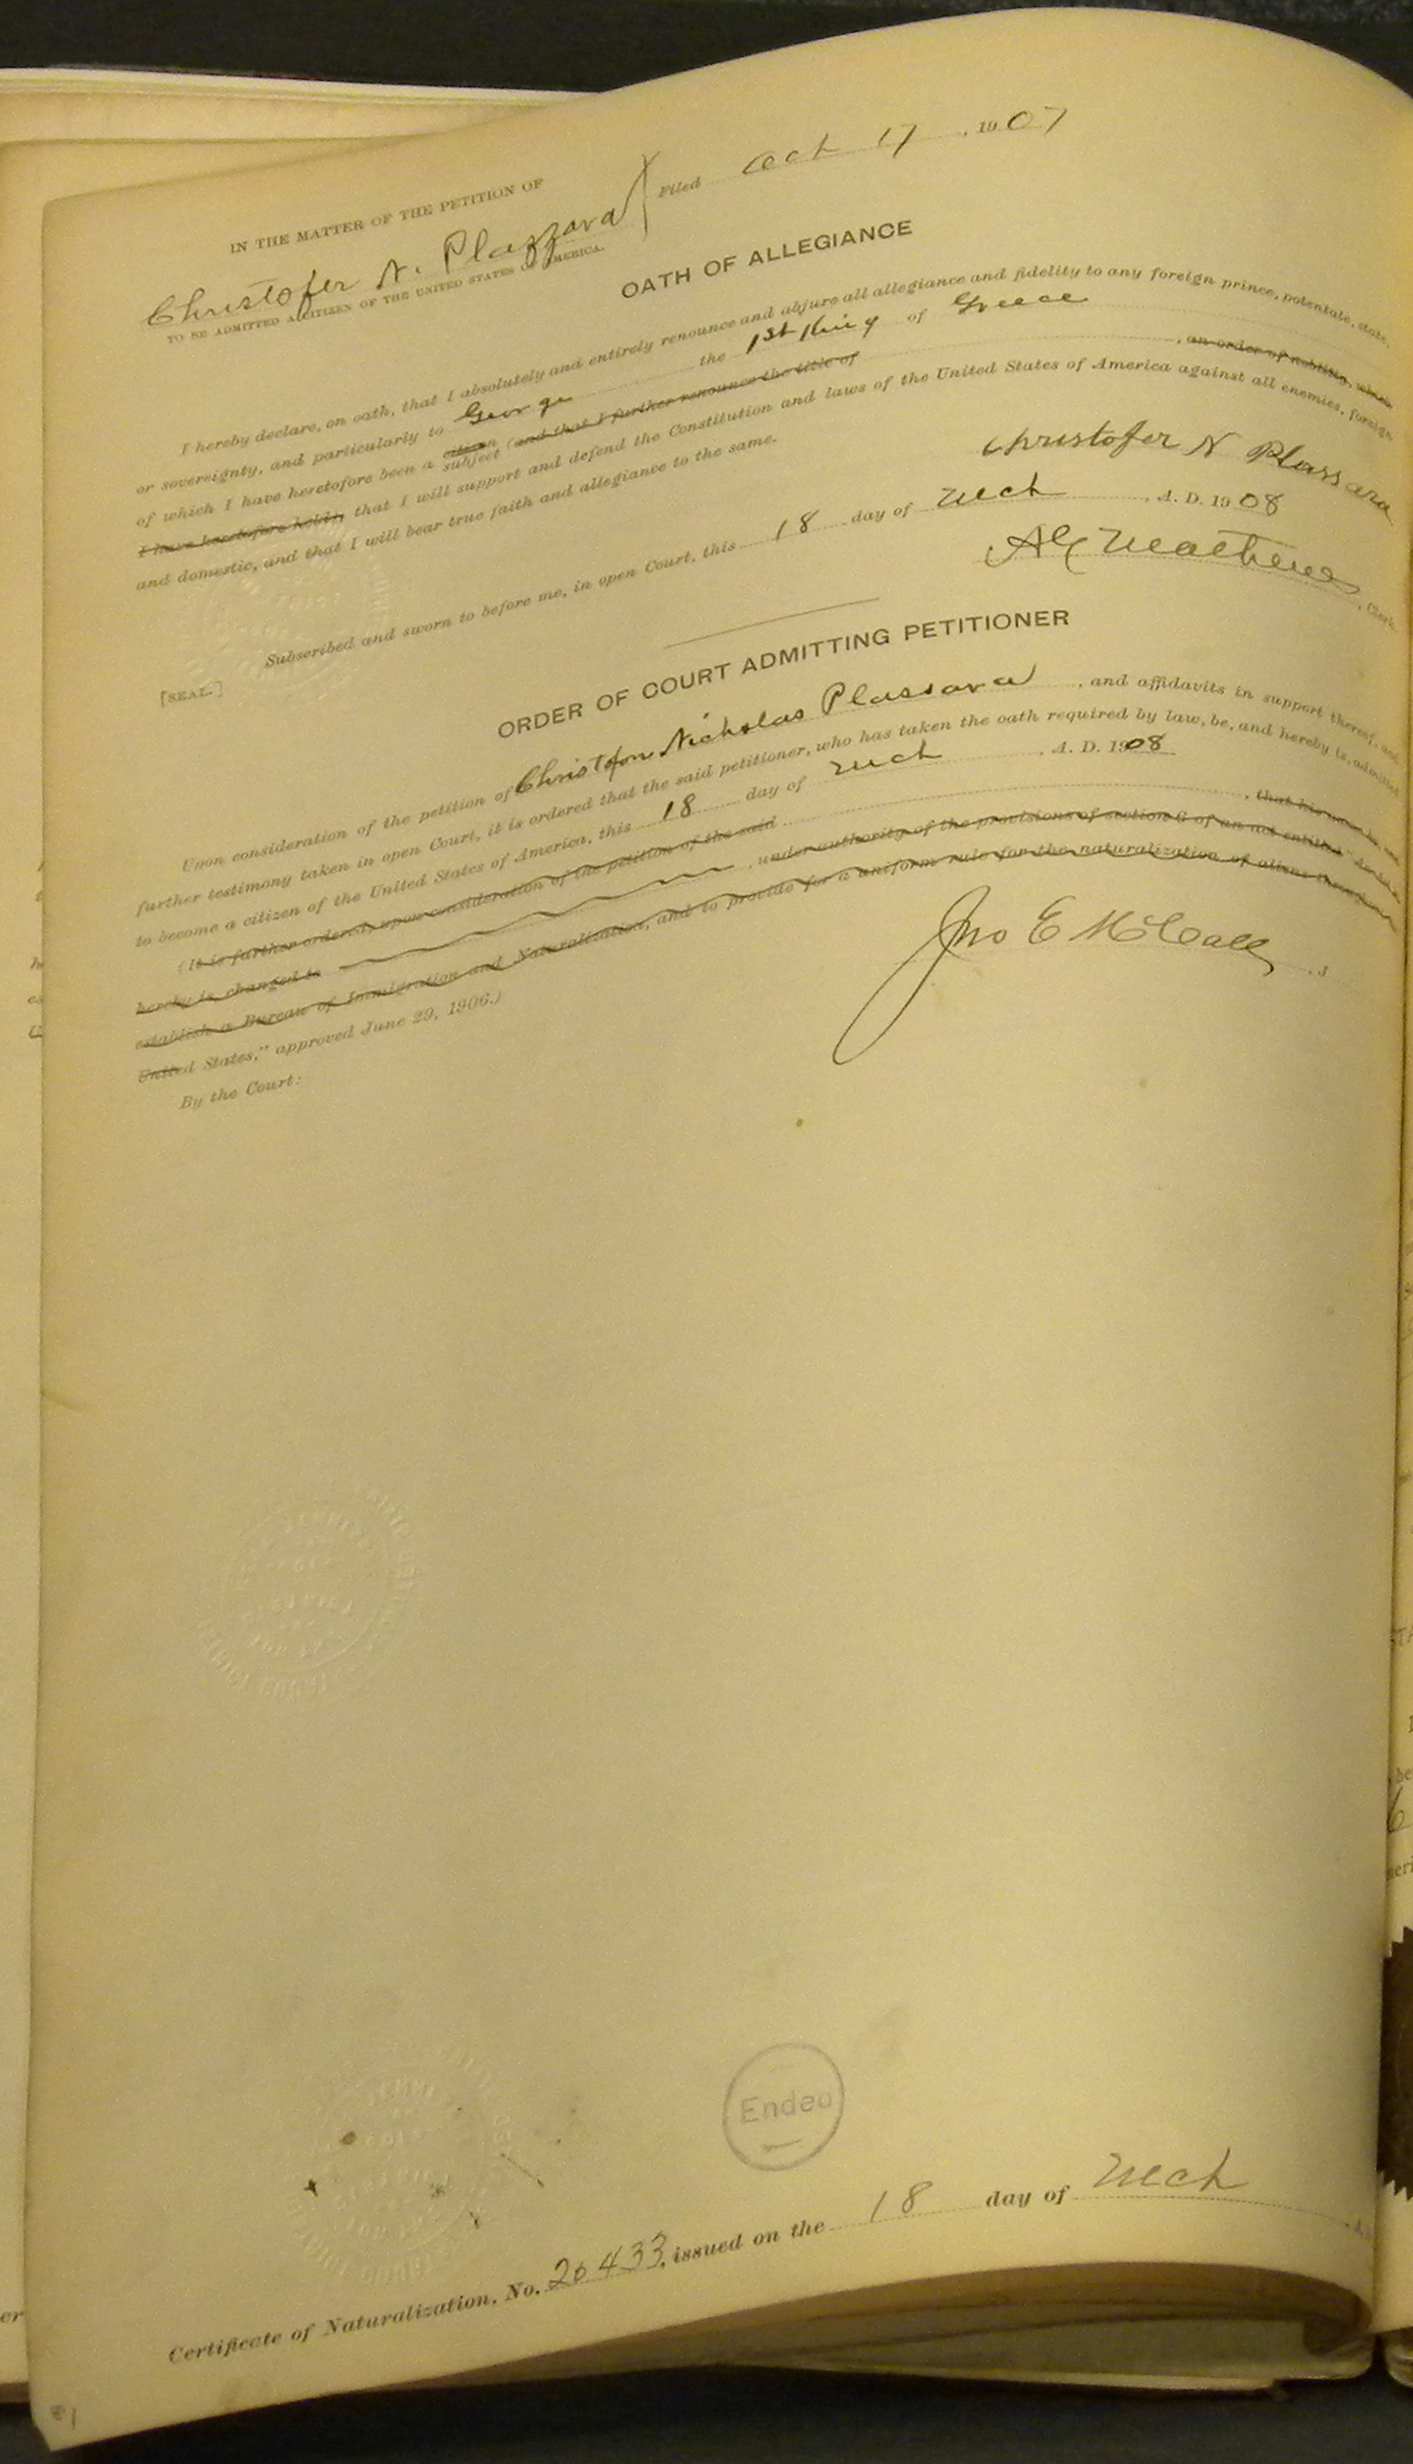 IN THE MATTER OF THE PETITION OF
Christofer N. Plazzara
TO BE ADMITTED A CITIZEN OF THE UNITED STATES OF AMERICA.
Filed Oct 17, 1907
OATH OF ALLEGIANCE
I hereby declare, on oath, that I absolutely and entirely renounce and abjure all allegiance and fidelity to any foreign prince, potentate, state,
or sovereignty, and particularly to George the 1st King of Greece
of which I have heretofore been a citizen subject (and that I further renounce the title of , an order of nobility, which
I have heretofore held), that I will support and defend the Constitution and laws of the United States of America against all enemies, foreign
and domestic, and that I will bear true faith and allegiance to the same.
Christofer N Plassara
Subscribed and sworn to before me, in open Court, this 18 day of Mch, A. D. 1908
[SEAL.]
Mathews, Clerk.
ORDER OF COURT ADMITTING PETITIONER
Upon consideration of the petition of Nicholas Plassara, and affidavits in support thereof, and
further testimony taken in open Court, it is ordered that the said petitioner, who has taken the oath required by law, be, and hereby is, admitted
to become a citizen of the United States of America, this 18 day of Mch, A. D. 1908
(It is further ordered, upon consideration of the petition of the said , that his name be, and
hereby is, changed to , under authority of the provisions of section 6 of an act entitled "An act to
establish a Bureau of Immigration and Naturalization, and to provide for a uniform rule for the naturalization of aliens throughout
United States," approved June 29, 1906.)
By the Court:
Jno E McCall, J
Ended
Certificate of Naturalization, No. 26433, issued on the 18 day of Mch